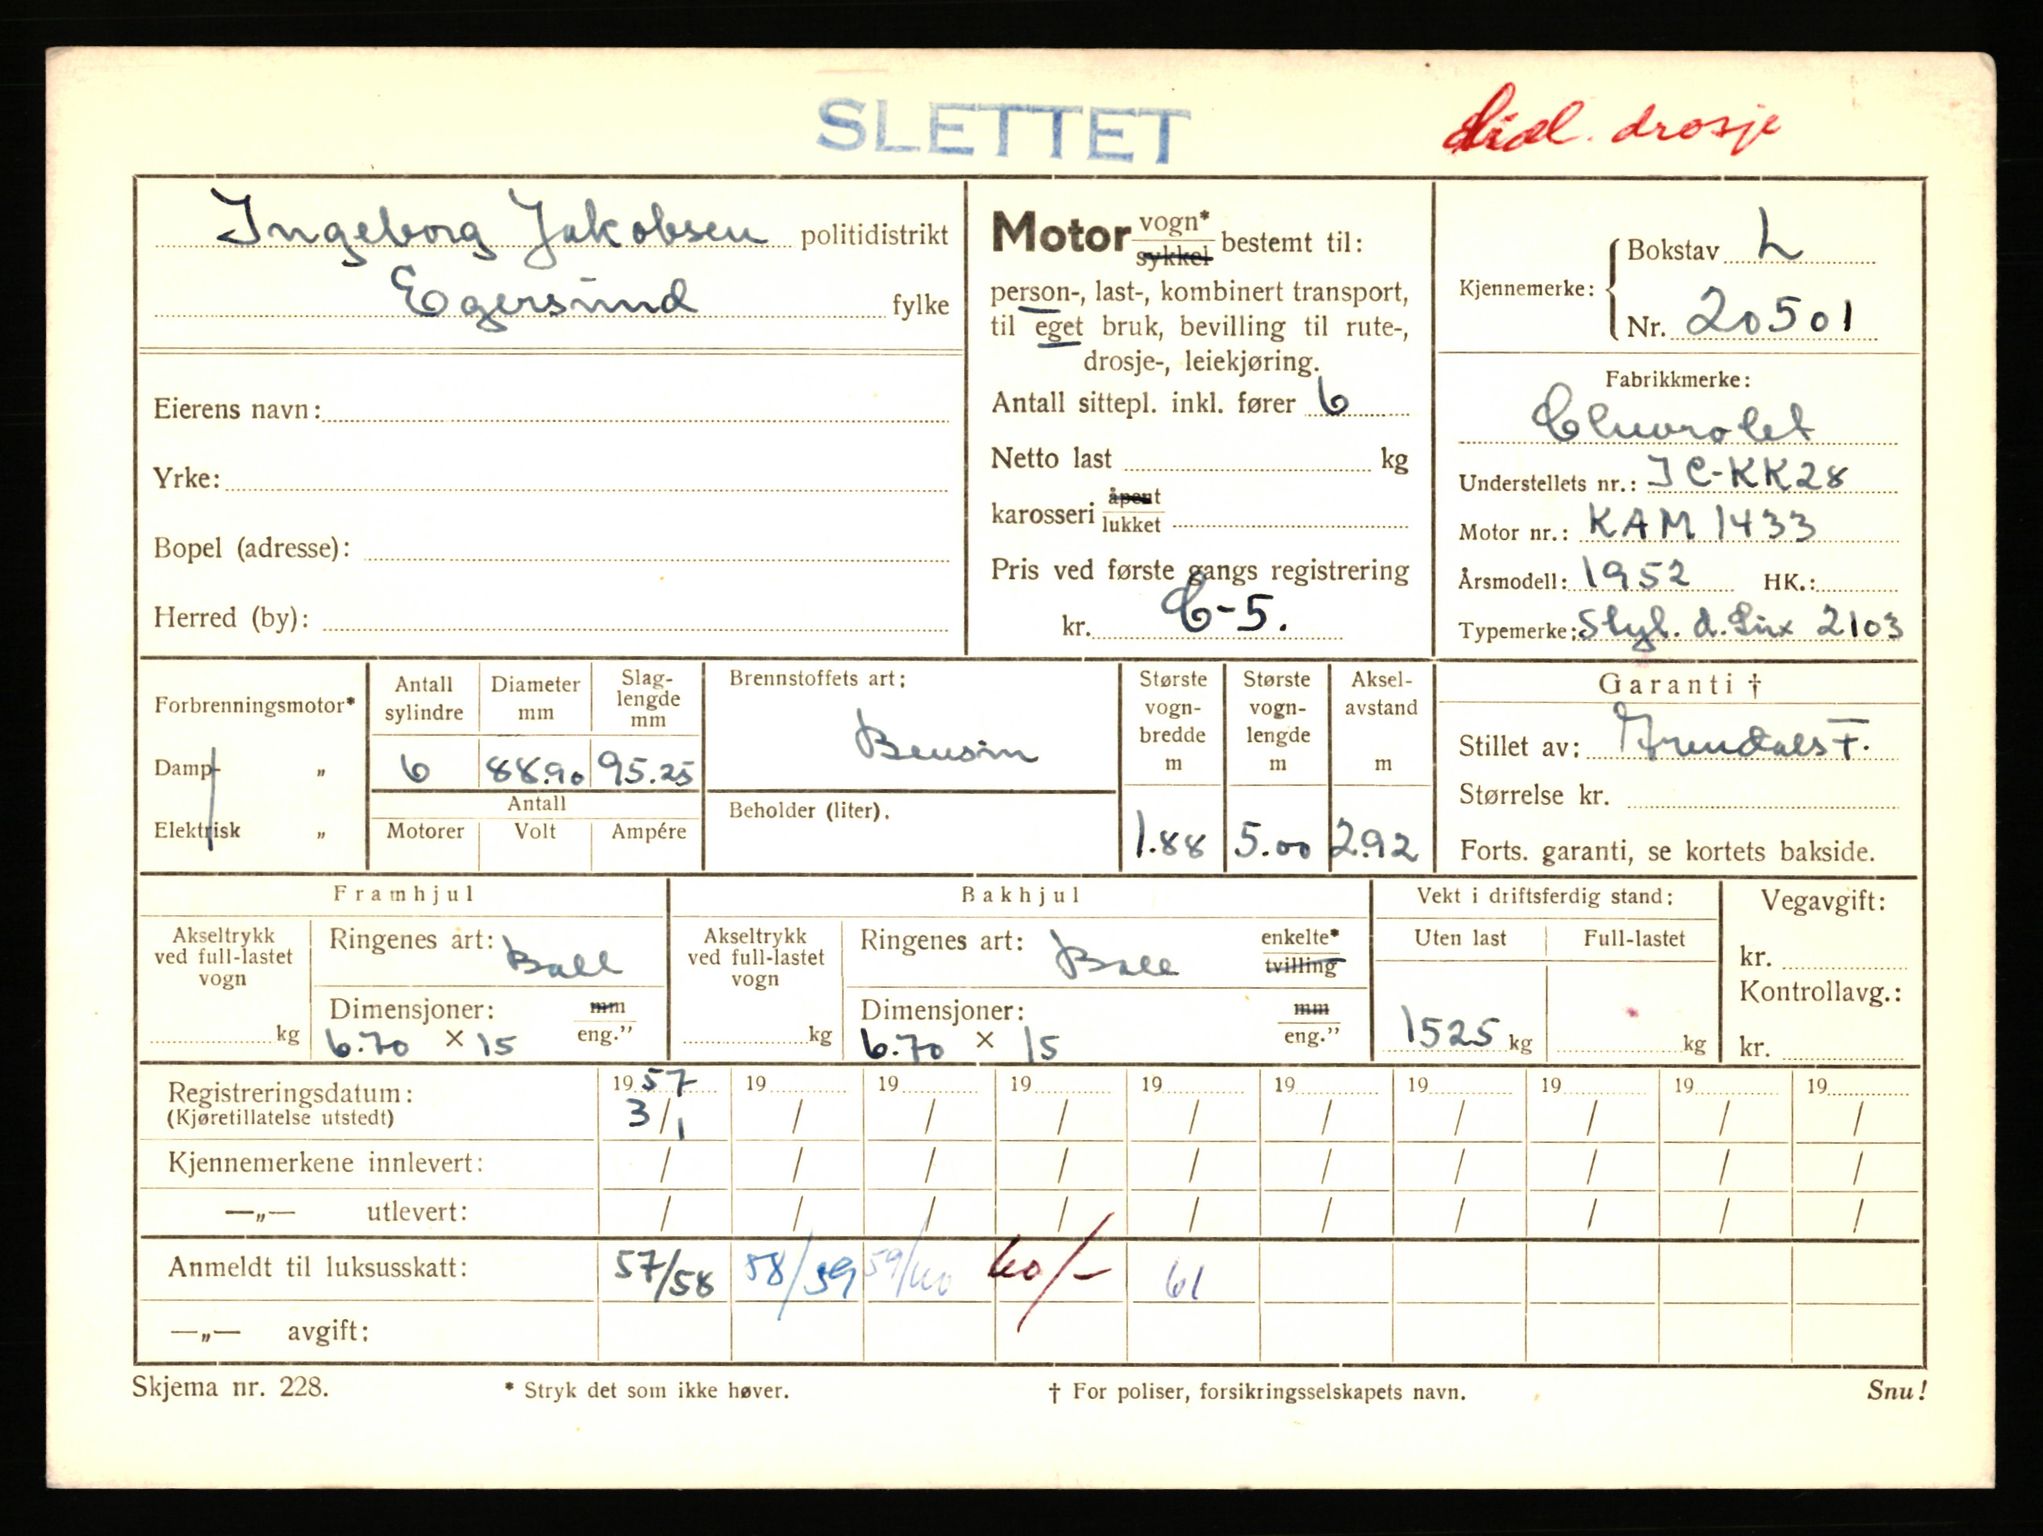 SLETTET
drosje
Ingeborg Jakobsen politidistrikt
Egersund fylke
Eierens navn:
Yrke:
Bopel (adresse):
Herred (by):
Motor vogn* sykkel bestemt til:
person-, last-, kombinert transport,
til eget bruk, bevilling til rute-,
drosje-, leiekjøring.
Antall sittepl. inkl. fører 6
Netto last kg
karosseri åpent lukket
Pris ved første gangs registrering
kr. C-5.
Kjennemerke: Bokstav L
Nr. 20501
Fabrikkmerke:
Chevrolet
Understellets nr.: JC-KK28
Motor nr.: KAM 1433
Årsmodell: 1952 HK.:
Typemerke: Styl. d. Lux 2103
Forbrenningsmotor*
Damp- „
Elektrisk „
Antall sylindre
Diameter mm
Slag-lengde mm
6 88.90 95.25
Antall
Motorer Volt Ampére
Brennstoffets art:
Bensin
Beholder (liter).
Største vogn-bredde m
Største vogn-lengde m
Aksel-avstand m
1.88 5.00 2.92
Garanti †
Stillet av:
Størrelse kr.
Forts. garanti, se kortets bakside.
Framhjul
Akseltrykk ved full-lastet vogn
kg
Ringenes art: Ball
Dimensjoner: mm eng.”
6.70 × 15
Bakhjul
Akseltrykk ved full-lastet vogn
kg
Ringenes art: Ball enkelte* tvilling
Dimensjoner: mm eng.”
6.70 × 15
Vekt i driftsferdig stand:
Uten last Full-lastet
1525 kg kg
Vegavgift:
kr.
Kontrollavg.:
kr.
Registreringsdatum: 1957 19 19 19 19 19 19 19 19 19
(Kjøretillatelse utstedt) 3/1 / / / / / / / / /
Kjennemerkene innlevert: / / / / / / / / / /
—„— utlevert: / / / / / / / / / /
Anmeldt til luksusskatt: 57/58 58/59 59/60 60/- 61
—„— avgift:
Skjema nr. 228. * Stryk det som ikke høver. † For poliser, forsikringsselskapets navn. Snu!